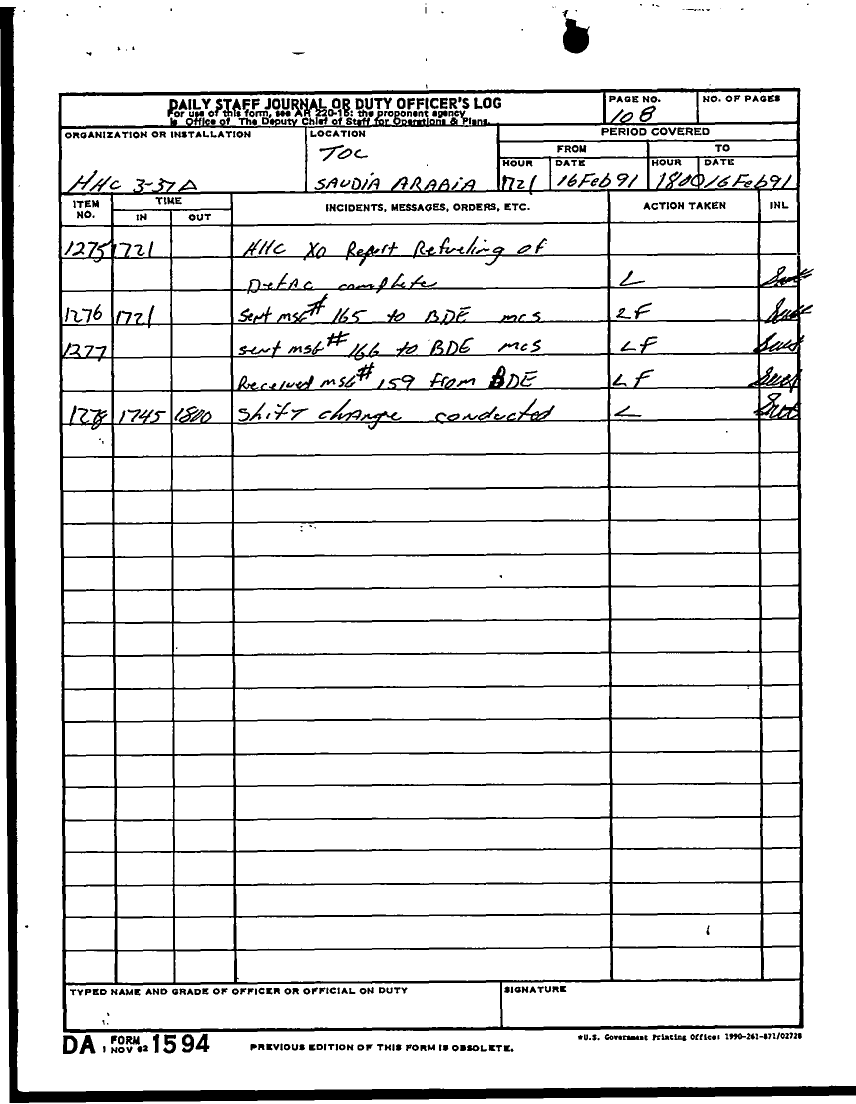 DAILY STAFF JOURNAL OR DUTY OFFICER'S LOG
For use of this form, see AR 220-15; the proponent agency
is Office of The Deputy Chief of Staff for Operations & Plans.
PAGE NO.
108
NO. OF PAGES
ORGANIZATION OR INSTALLATION
HHC 3-37 A
LOCATION
TOC
SAUDIA ARABIA
PERIOD COVERED
FROM
TO
HOUR
DATE
HOUR
DATE
1721
16 Feb 91
1800
16 Feb 91
ITEM NO.
TIME
IN
OUT
INCIDENTS, MESSAGES, ORDERS, ETC.
ACTION TAKEN
INL
1275 1721 HHC XO Report Refueling of
complete L
1276 1721 Sent msg# 165 to BDE mcs 2F
1277 sent msg# 166 to BDE mcs LF
Received msg# 159 from BDE LF
1278 1745 1800 Shift change conducted L
TYPED NAME AND GRADE OF OFFICER OR OFFICIAL ON DUTY
SIGNATURE
DA FORM 1594
1 NOV 62
PREVIOUS EDITION OF THIS FORM IS OBSOLETE.
*U.S. Government Printing Office: 1990-261-871/02728